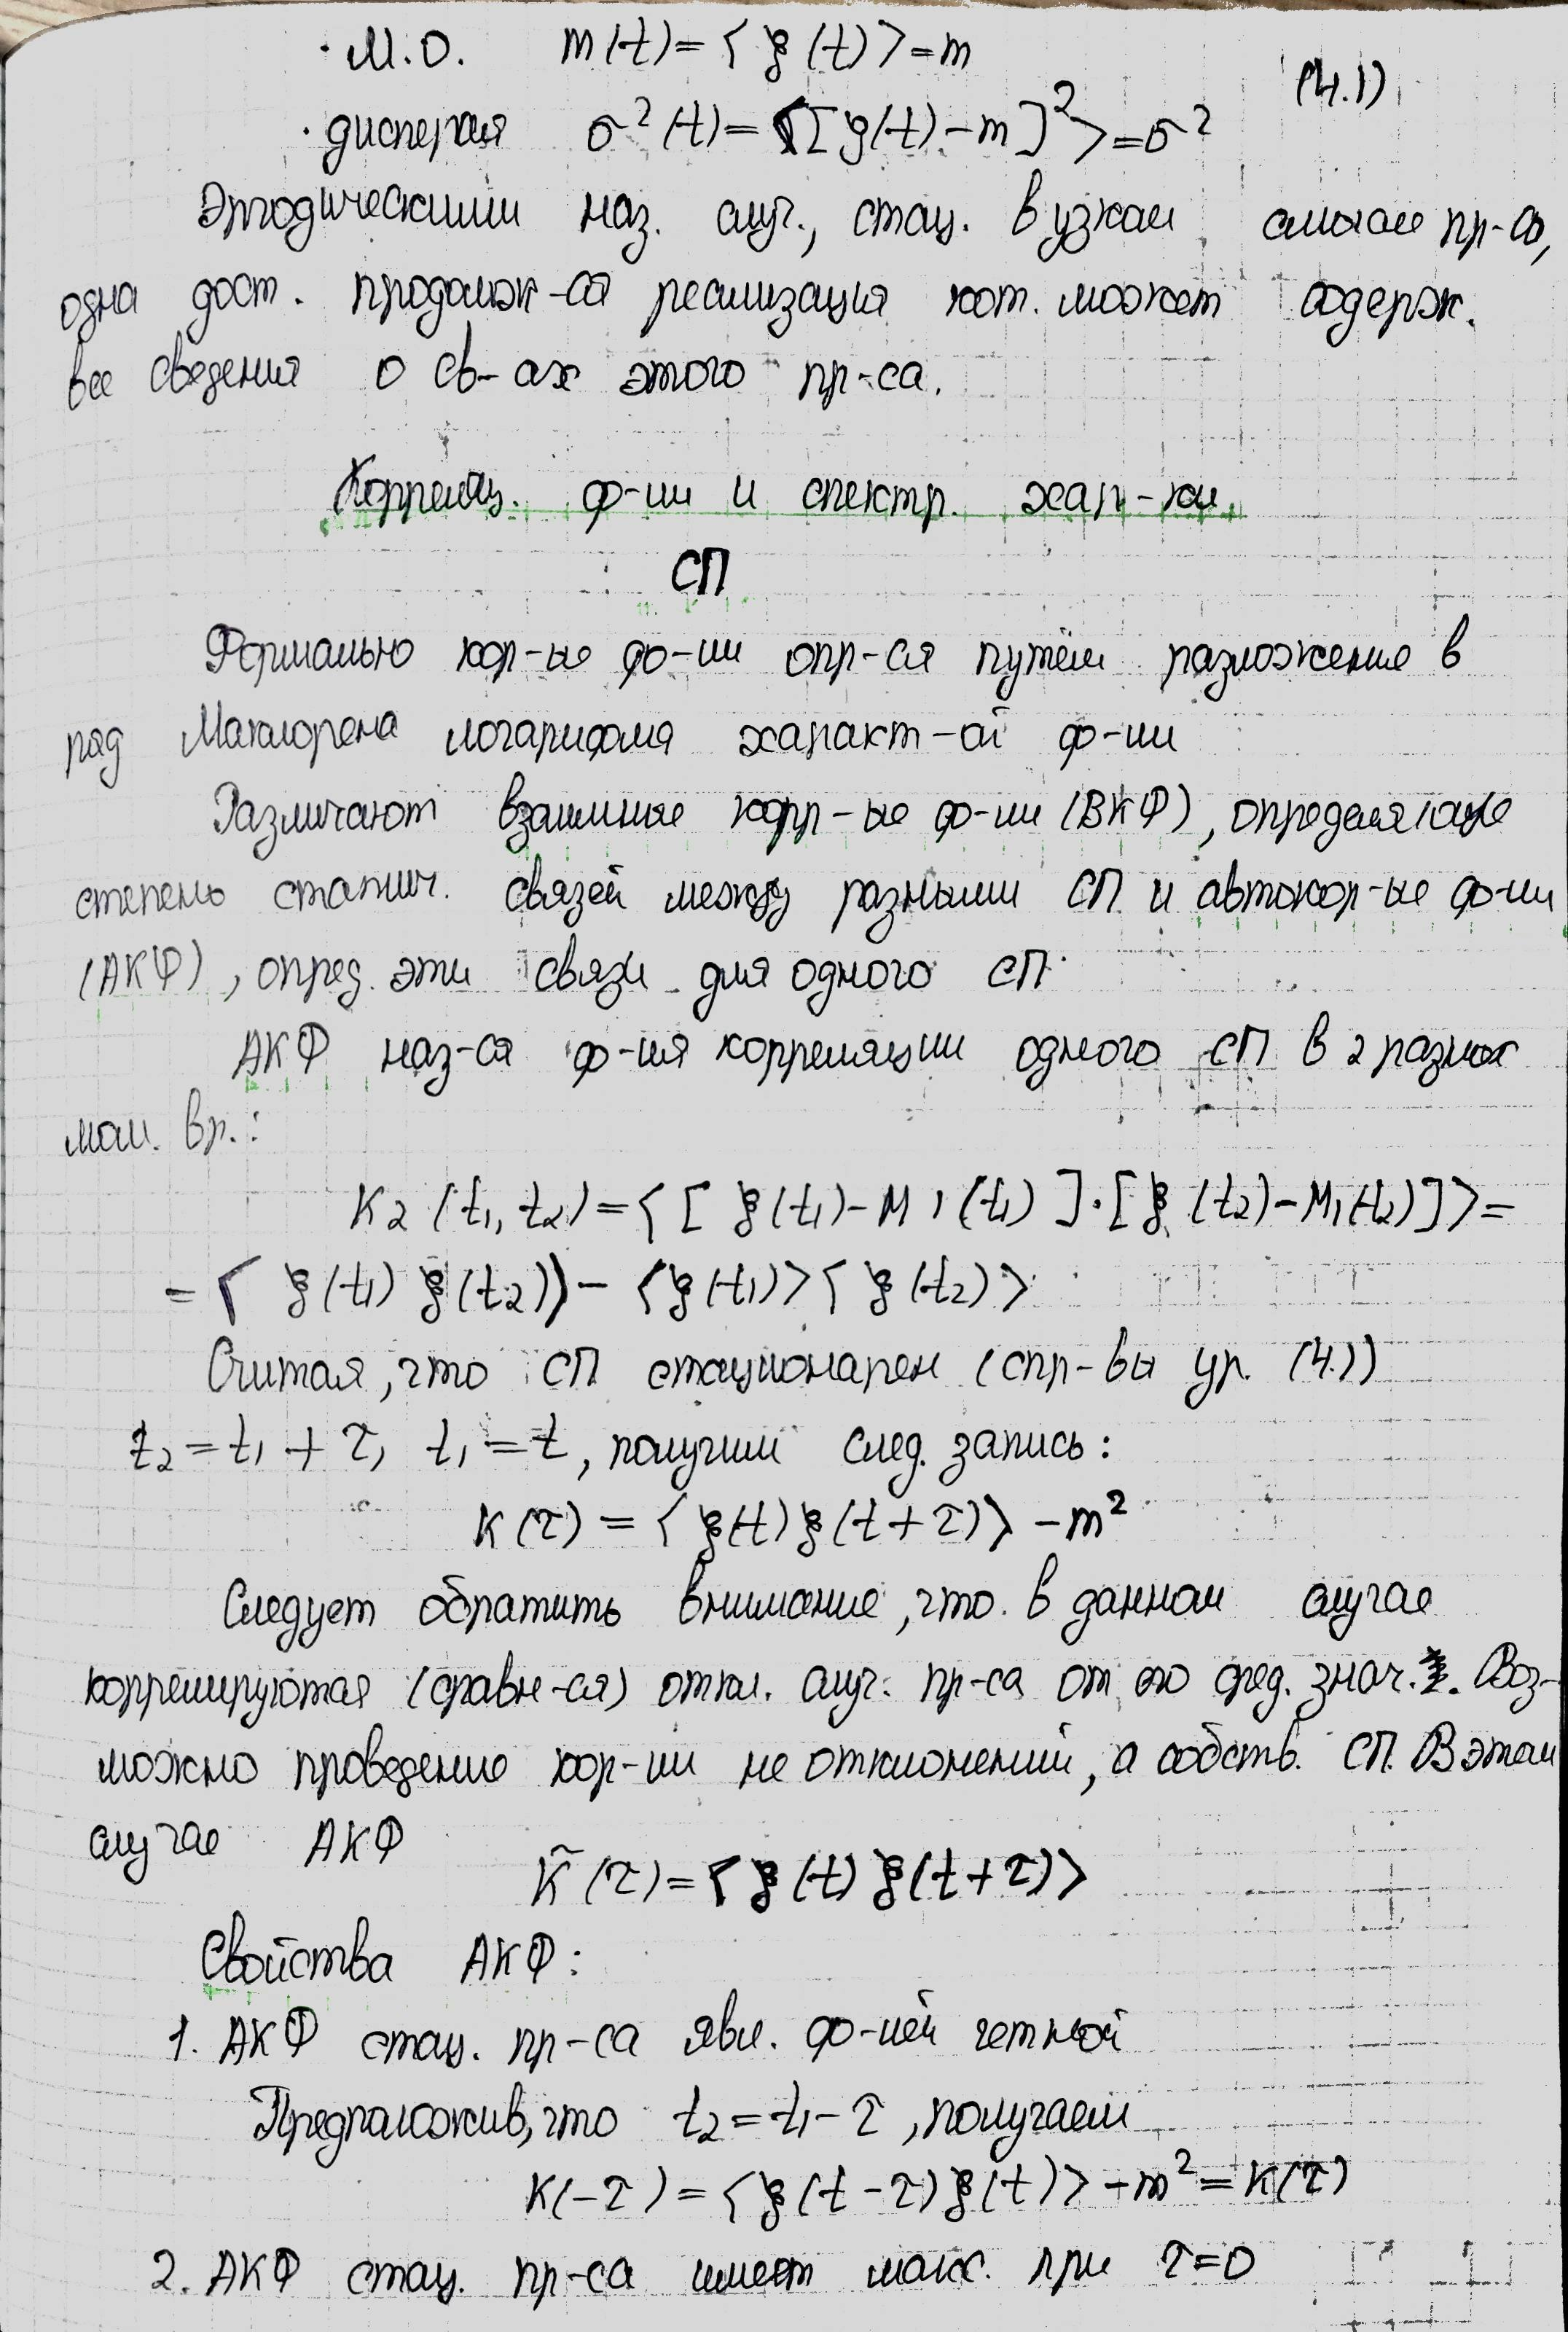 · М.О. m(t)=⟨ξ(t)⟩=m
(4.1)
· дисперсия σ²(t)=⟨[ξ(t)-m]²⟩=σ²
Эргодическими наз. случ., стац. в узком смысле пр-сы,
одна дост. продолж-ая реализация кот. может содерж.
все сведения о св-ах этого пр-са.
Корреляц. ф-ии и спектр. хар-ки
СП
Формально кор-ые ф-ии опр-ся путём разложение в
ряд Маклорена логарифма характ-ой ф-ии
Различают взаимные корр-ые ф-ии (ВКФ), определяющие
степень статич. связей между разными СП и автокор-ые ф-ии
(АКФ), опред. эти связи для одного СП.
АКФ наз-ся ф-ия корреляции одного СП в 2 разных
мом. вр.:
K2(t₁, t₂)=⟨[ξ(t₁)-M₁(t₁)]·[ξ(t₂)-M₁(t₂)]⟩=
=⟨ξ(t₁)ξ(t₂)⟩-⟨ξ(t₁)⟩⟨ξ(t₂)⟩
Считая, что СП стационарен (спр-вы ур. (4.1)
t₂=t₁+τ, t₁=t, получим след. запись:
K(τ)=⟨ξ(t)ξ(t+τ)⟩-m²
Следует обратить внимание, что в данном случае
коррелируются (сравн-ся) откл. случ. пр-са от его сред. знач. Воз-
можно проведение кор-ии не отклонений, а собств. СП. В этом
случае АКФ
K̃(τ)=⟨ξ(t)ξ(t+τ)⟩
Свойства АКФ:
1. АКФ стац. пр-са явл. ф-ией четной
Предположив, что t₂=t₁-τ, получаем
K(-τ)=⟨ξ(t-τ)ξ(t)⟩-m²=K(τ)
2. АКФ стац. пр-са имеет макс. при τ=0